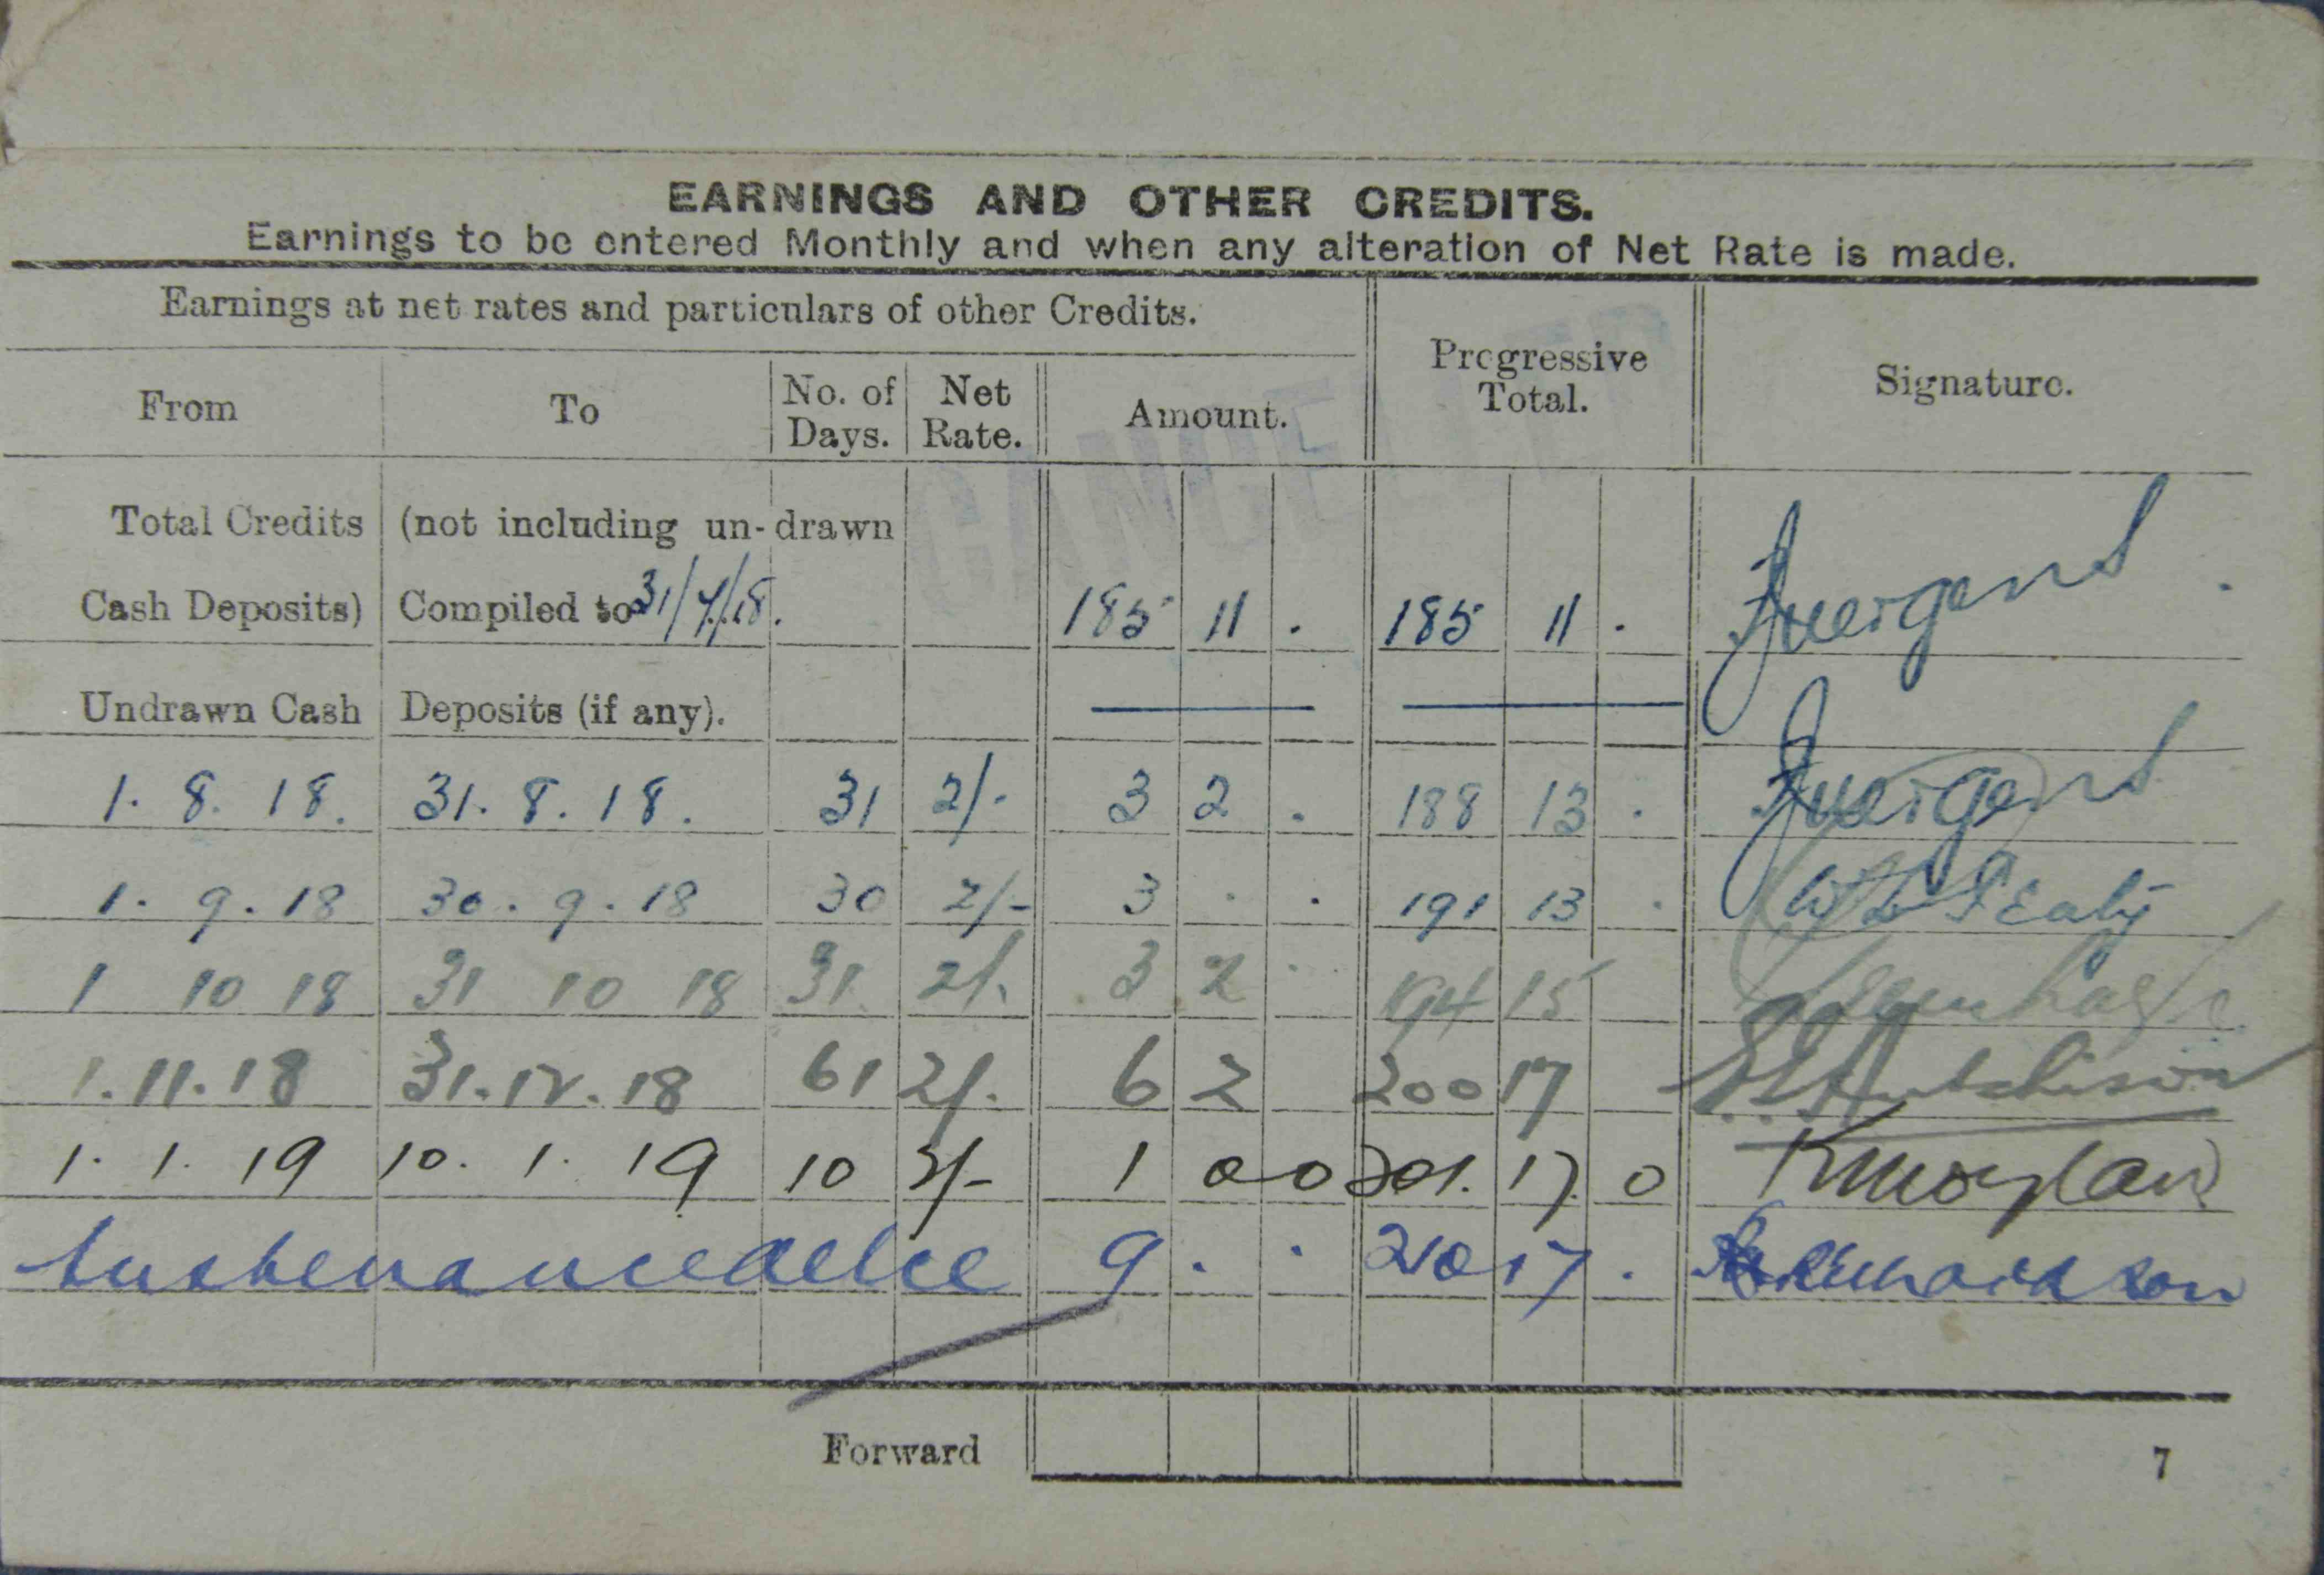 EARNINGS AND OTHER CREDITS.
Earnings to be entered Monthly and when any alteration of Net Rate is made.
Earnings at net rates and particulars of other Credits.
Progressive Total.
Signature.
From To No. of Days. Net Rate. Amount.
Total Credits (not including un-drawn
Cash Deposits) Compiled to 31/7/18. 185 11 . 185 11 .
Undrawn Cash Deposits (if any).
1. 8. 18. 31. 8. 18. 31 2/- 3 2 . 188 13 .
1. 9. 18 30. 9. 18 30 2/- 3 . . 191 13 .
1 10 18 31 10 18 31 2/- 3 2 . 194 15
1.11.18 31.12.18 61 2/- 6 2 200 17 Hutchison
1. 1. 19 10. 1. 19 10 2/- 1 0 0 201. 17 0
Sustenance 9 . . 210 17 . Richardson
Forward
7
CANCELLED